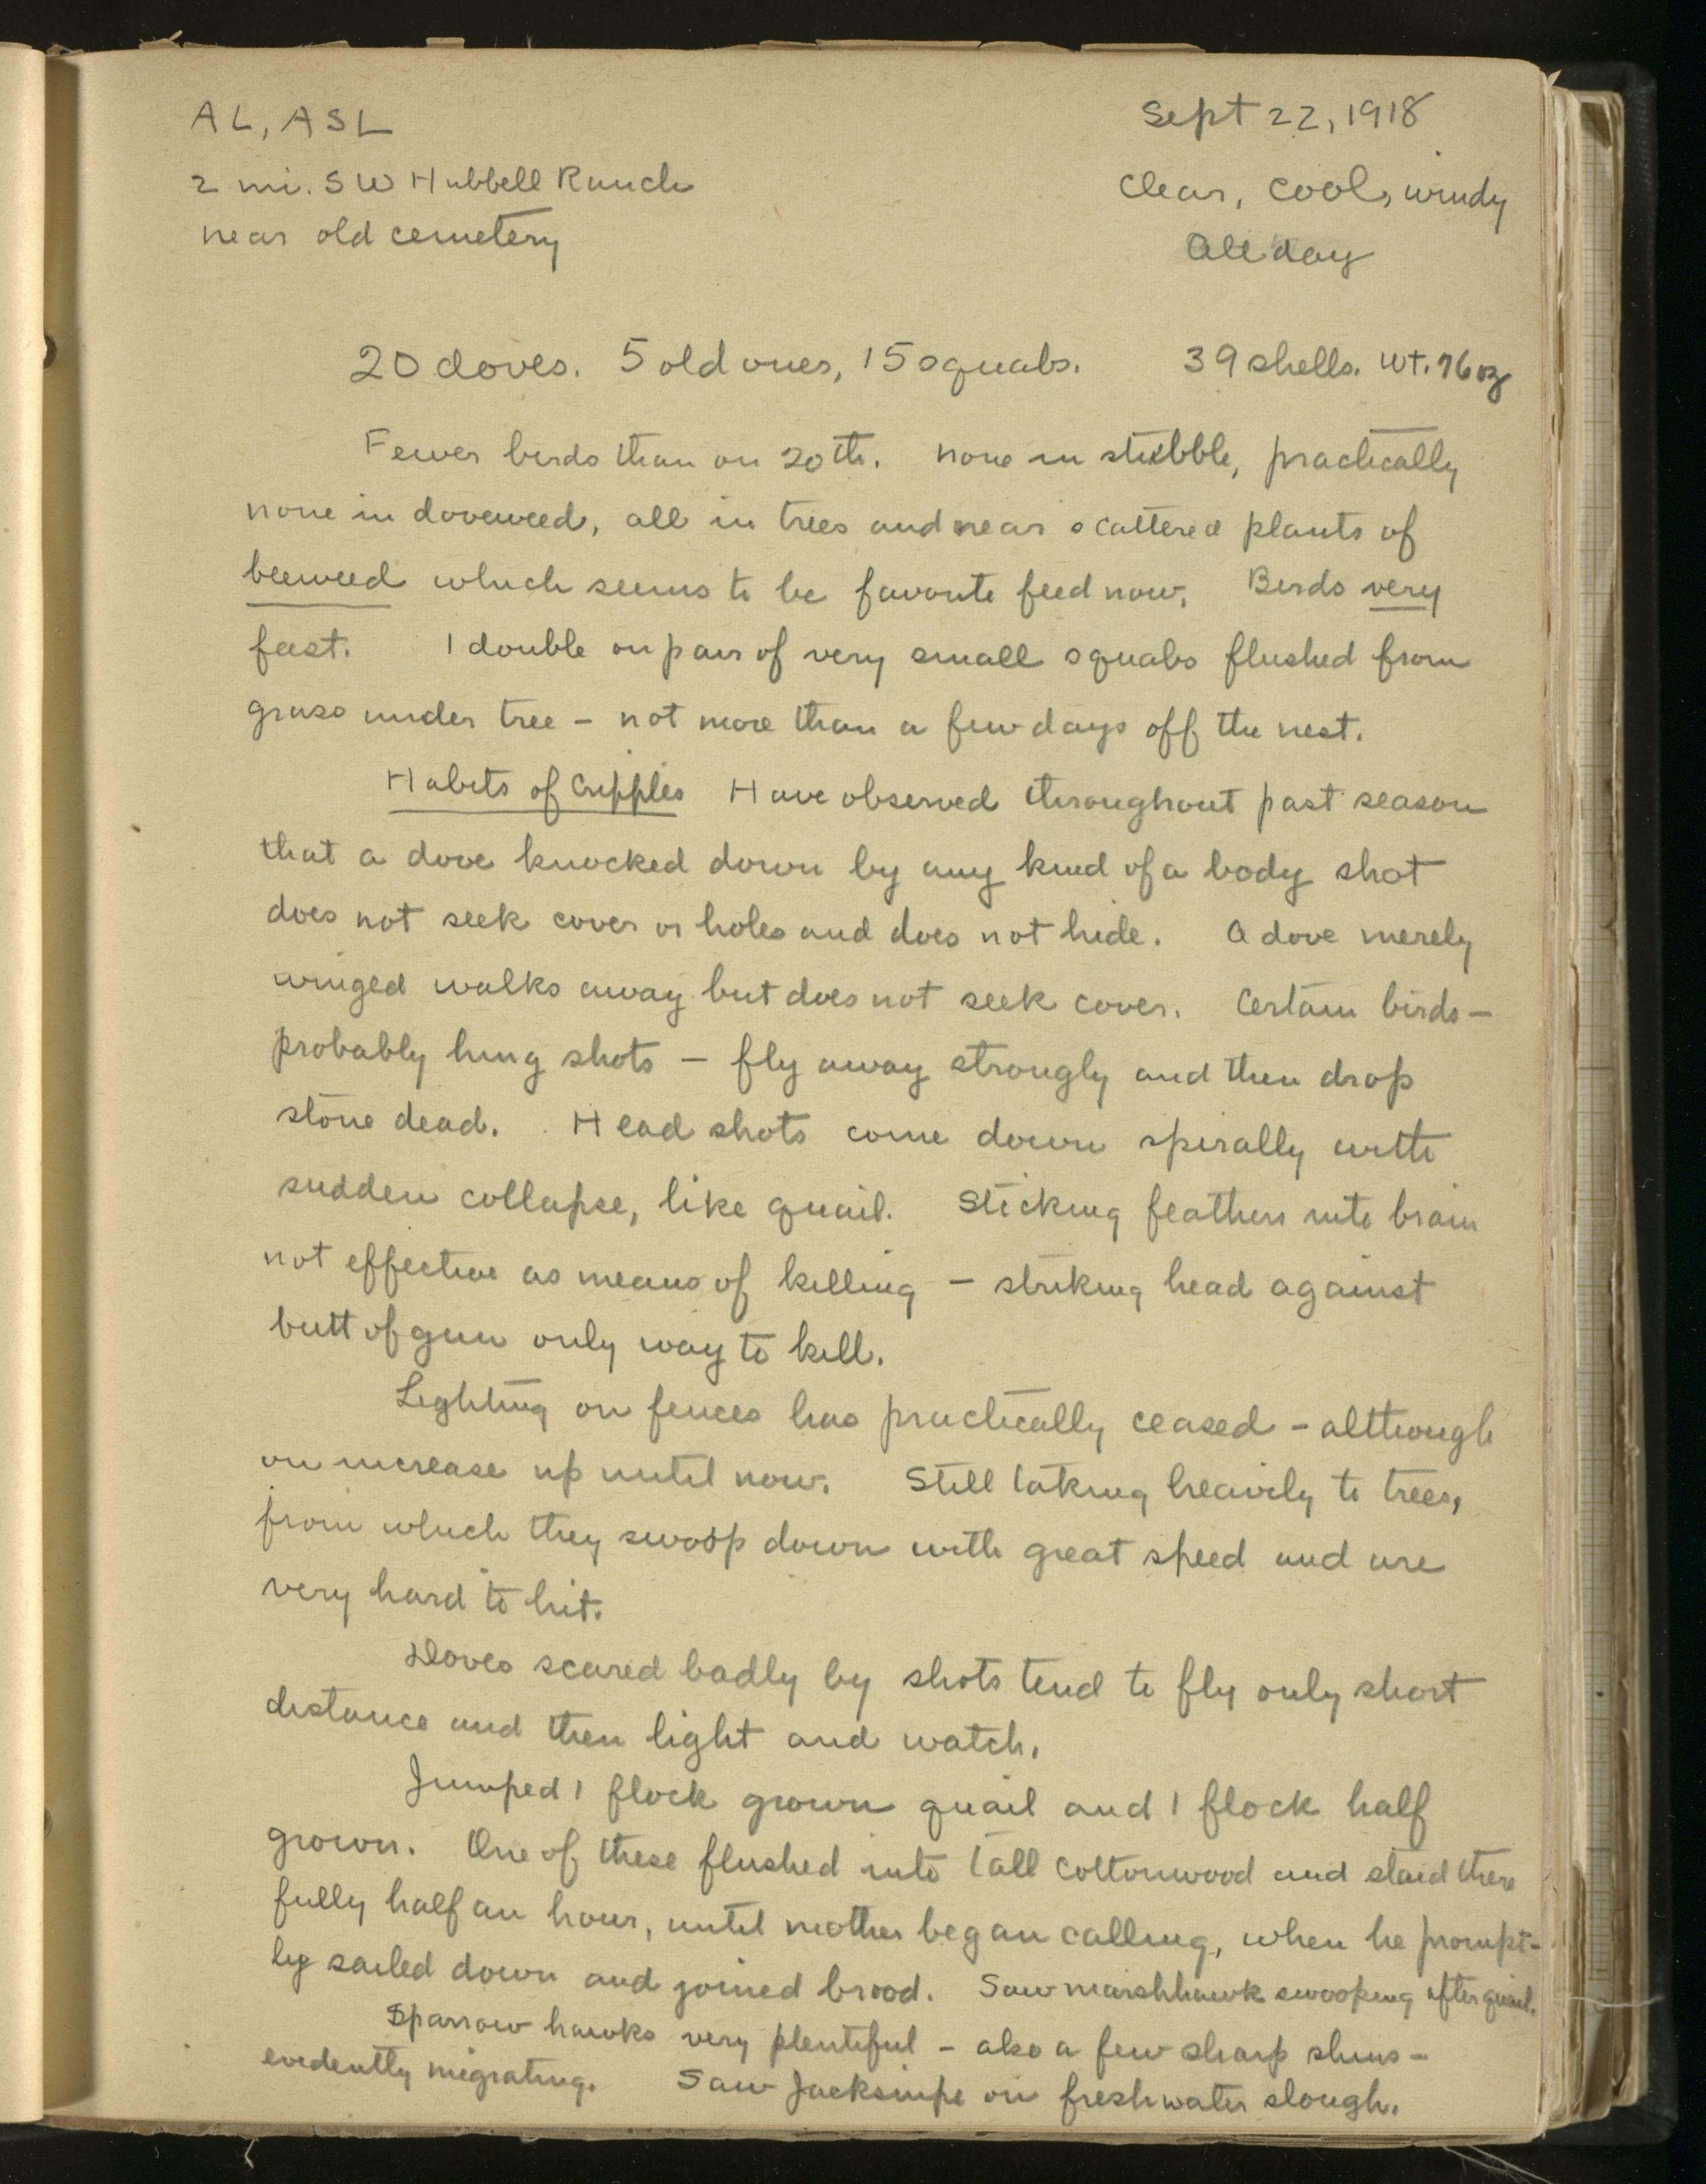 AL, ASL
Sept 22, 1918
2 mi. SW Hubbell Ranch
Clear, cool, windy
near old cemetery
All day
20 doves. 5 old ones, 15 squabs. 39 shells. Wt. 76 oz
Fewer birds than on 20th. none in stubble, practically
none in doveweed, all in trees and near scattered plants of
beeweed which seems to be favorite feed now. Birds very
fast. 1 double on pair of very small squabs flushed from
grass under tree - not more than a few days off the nest.
Habits of Cripples Have observed throughout past season
that a dove knocked down by any kind of a body shot
does not seek cover or holes and does not hide. A dove merely
winged walks away but does not seek cover. Certain birds -
probably lung shots - fly away strongly and then drop
stone dead. Head shots come down spirally with
sudden collapse, like quail. Sticking feathers into brain
not effective as means of killing - striking head against
butt of gun only way to kill.
Lighting on fences has practically ceased - although
on increase up until now. Still taking heavily to trees,
from which they swoop down with great speed and are
very hard to hit.
Doves scared badly by shots tend to fly only short
distance and then light and watch.
Jumped 1 flock grown quail and 1 flock half
grown. One of these flushed into tall cottonwood and staid there
fully half an hour, until mother began calling, when he prompt-
ly sailed down and joined brood. Saw marshhawk swooping after quail.
Sparrow hawks very plentiful - also a few sharp shins -
evidently migrating. Saw Jacksnipe on freshwater slough.